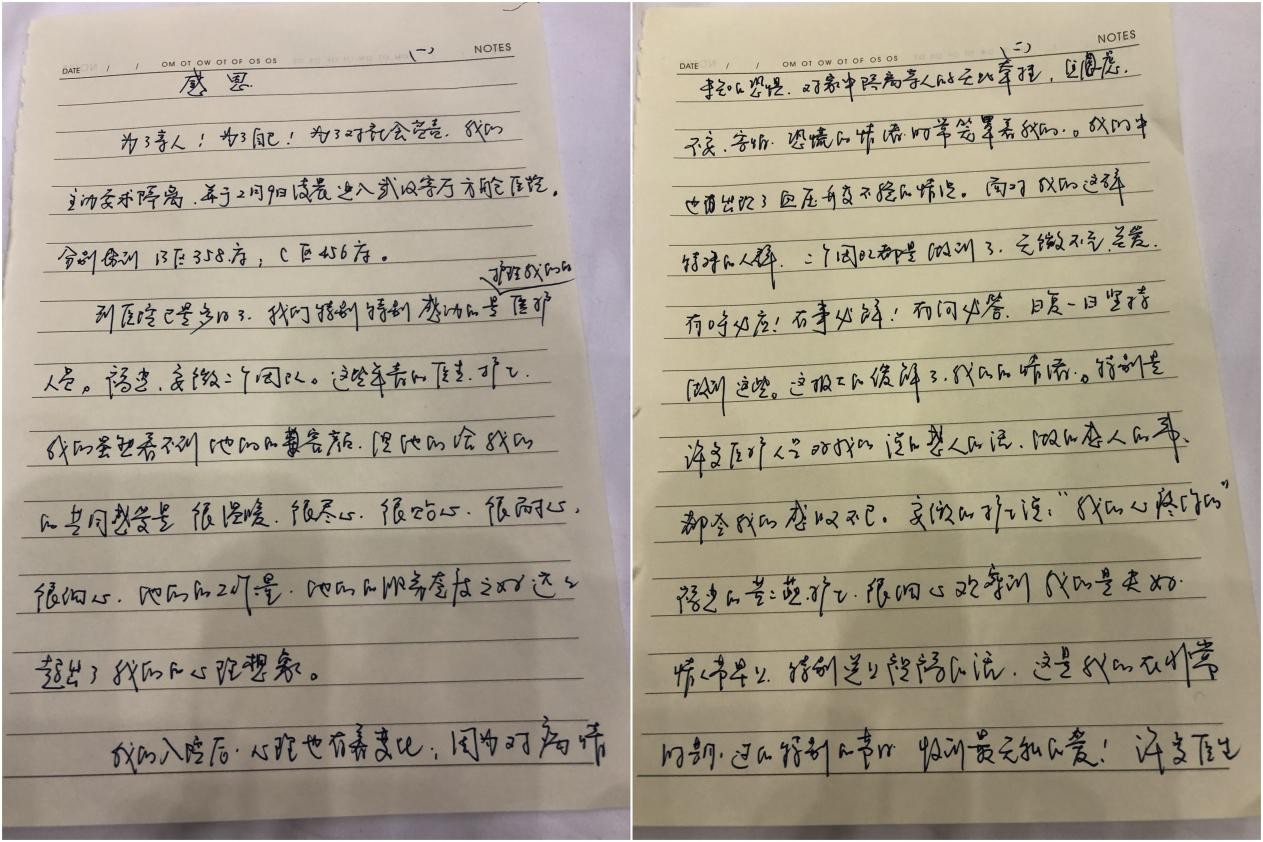 (一)
NOTES
DATE / / OM OT OW OT OF OS OS
感恩
为了亲人！为了自己！为了对社会负责，我们
主动要求隔离，并于2月9日凌晨进入武汉客厅方舱医院。
分别住到B区358床，C区456床。
到医院已是多日了，我们特别特别感动的是护理我们的医护
人员。福建、安徽二个团队。这些年青的医生、护士，
我们虽然看不到他们的容颜，但他们给我们
的共同感受是很温暖、很尽心、很贴心、很耐心、
很细心，他们的工作量，他们的服务态度之好远远
超出了我们的心理想象。
我们入院后，心理也有着变化，因为对病情
(二)
NOTES
DATE / / OM OT OW OT OF OS OS
的恐惧，对家中隔离亲人的无比牵挂，焦虑、
不安、害怕、恐慌的情绪时常笼罩着我们。我们中
也有出现了血压升高不稳的情况。面对我们这群
特殊的人群，二个团队都是做到了，无微不至关爱，
有呼必应！有事必解！有问必答，日复一日坚持
做到这些。这极大的缓解了我们的情绪。特别是
许多医护人员对我们说的感人的话，做的感人的事，
都令我们感叹不已。安徽的护士说：“我们心疼你们”
福建的黄护士，很细心观察到我们是夫妇，
情人节早上，特别送上祝福的话，这是我们在非常
时期，过的特别的节日，收到最无私的爱！许多医生